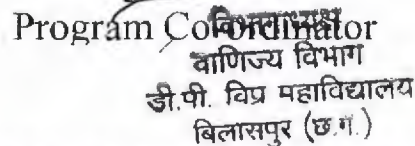 Program Coordinator
विभागाध्यक्ष
वाणिज्य विभाग
डी.पी. विप्र महाविद्यालय
बिलासपुर (छ.ग.)